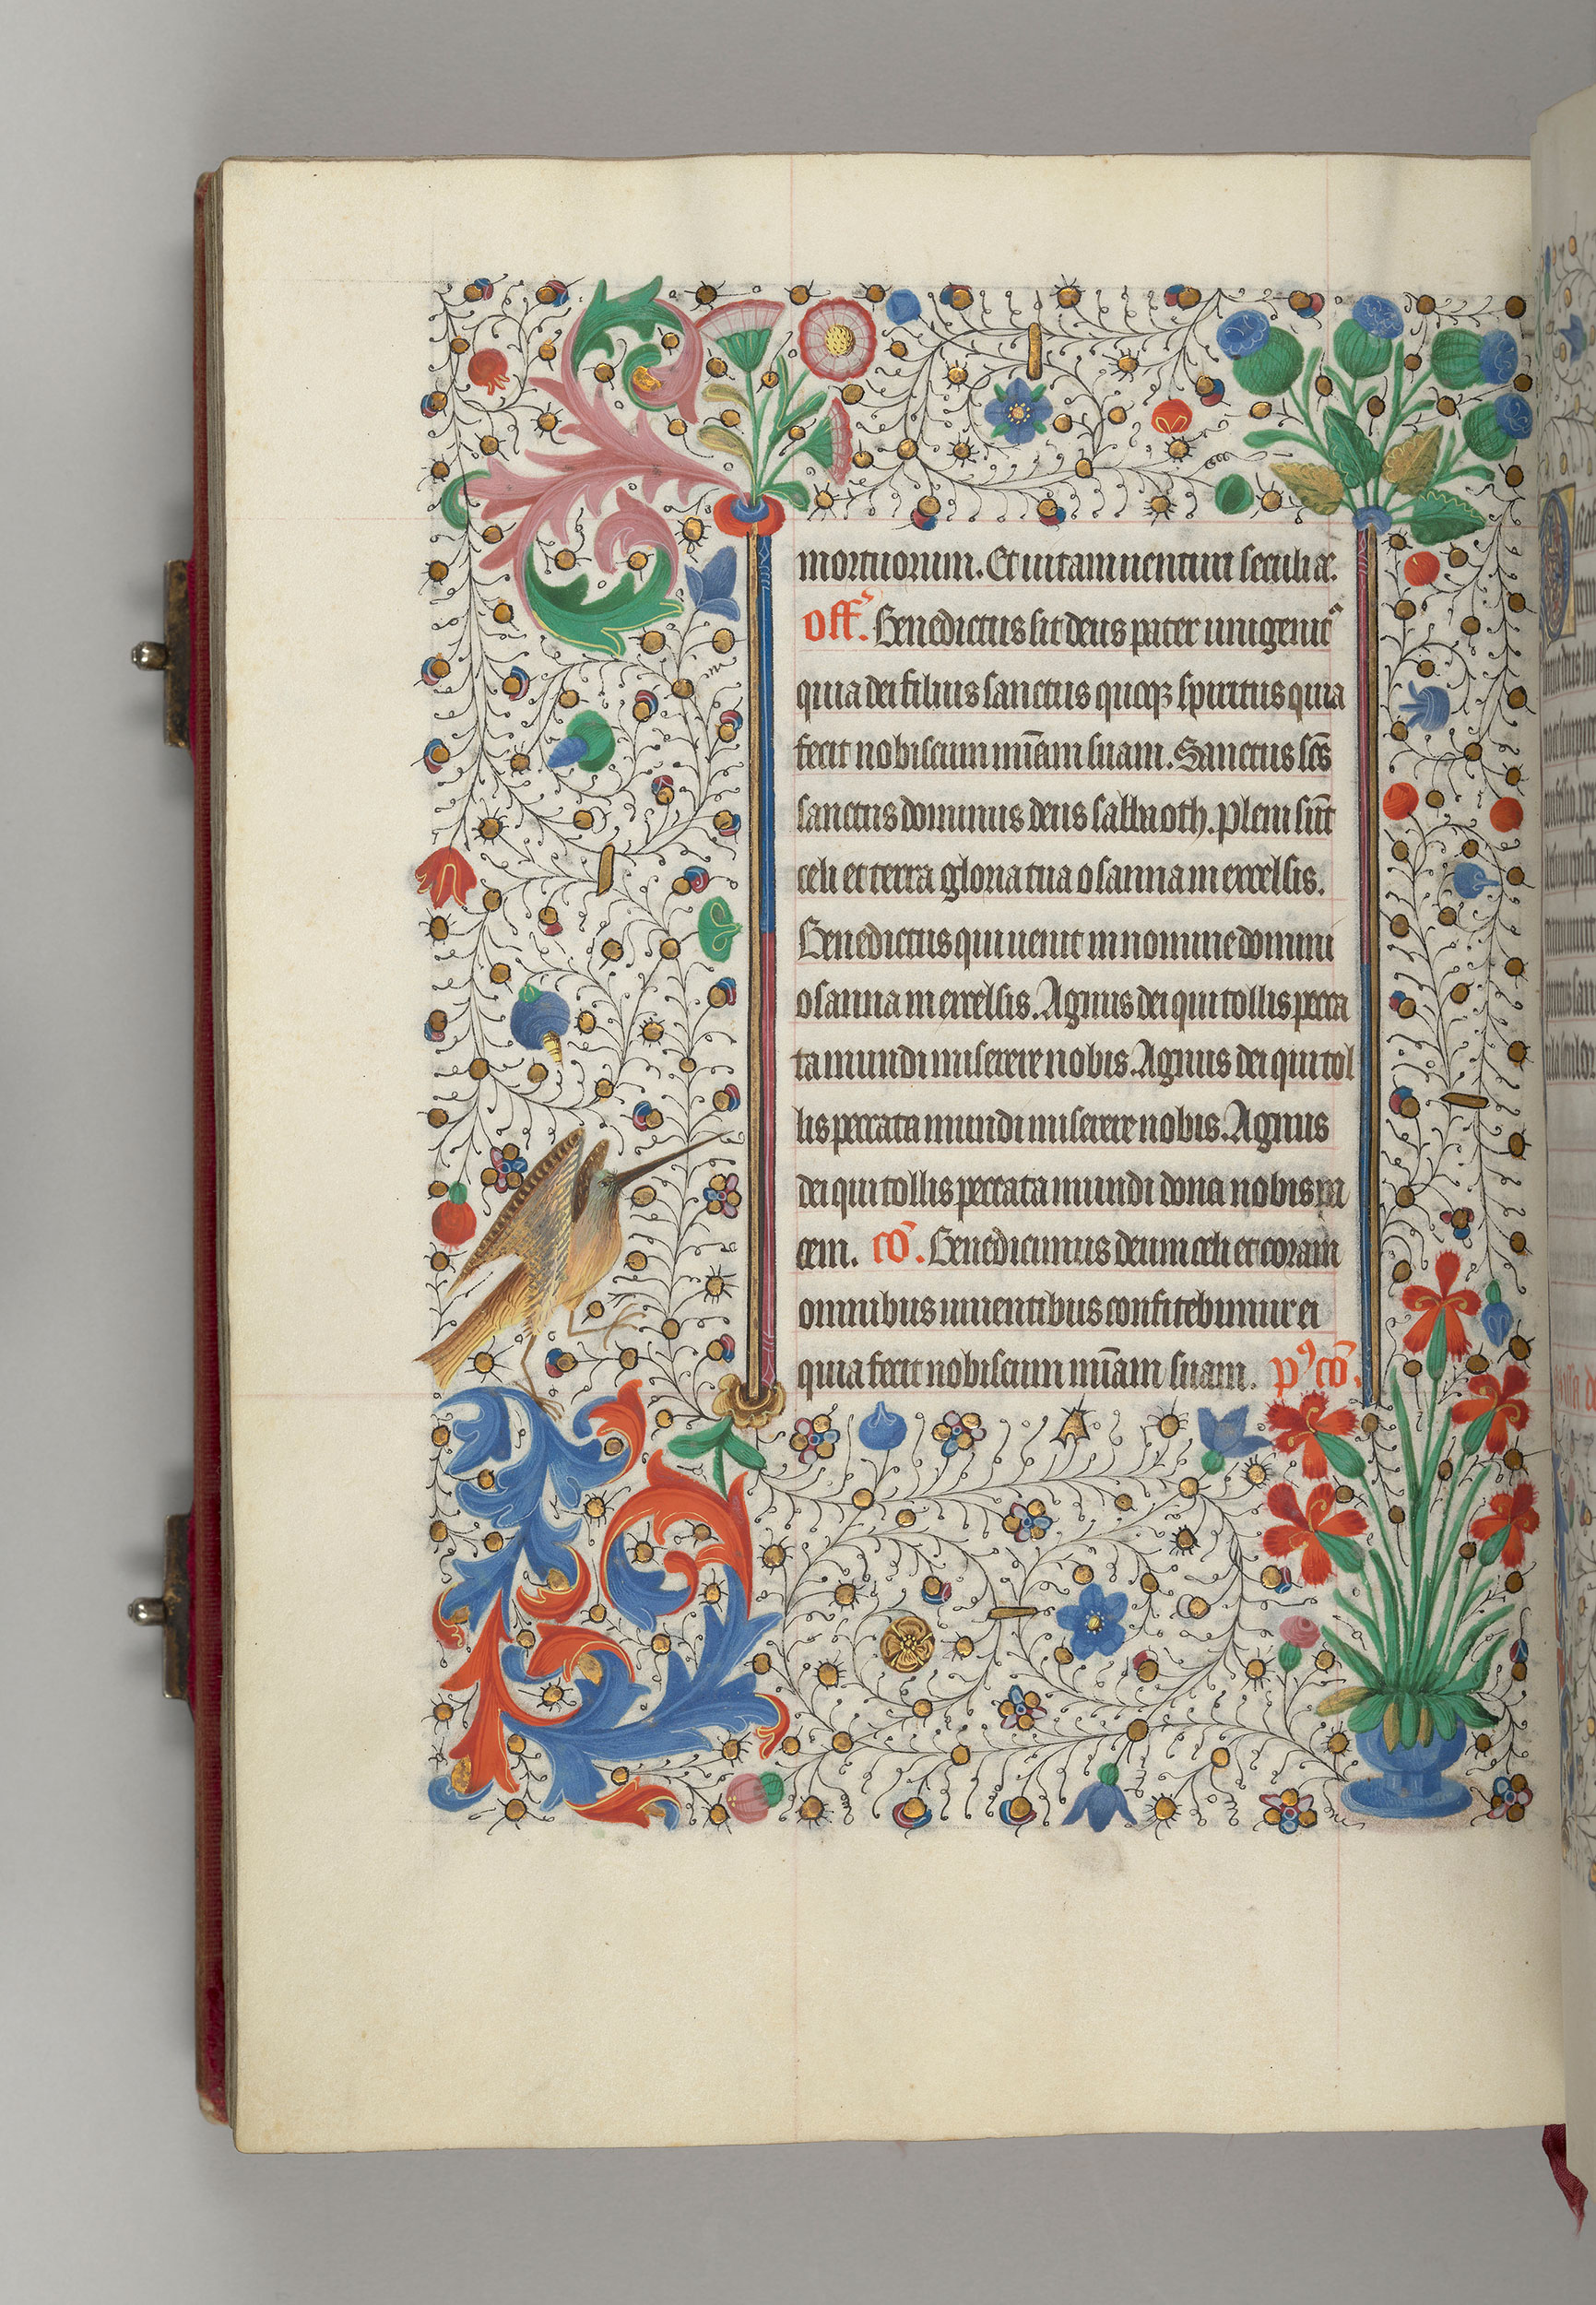 mortuorum. Et uitam uenturi seculi am̄.
Off̄. Benedictus sit deus pater unigenit᷒
quia dei filius sanctus quoqꝫ spiritus quia
fecit nobiscum mīam suam. Sanctus scs̄
sanctus dominus deus sabbaoth. Pleni sūt
celi et terra gloria tua osanna in excelsis.
Benedictus qui uenit in nomine domini
osanna in excelsis. Agnus dei qui tollis pecca
ta mundi miserere nobis. Agnus dei qui tol
lis peccata mundi miserere nobis. Agnus
dei qui tollis peccata mundi dona nobis pa
cem. cō. Benedicimus deum celi et coram
omnibus uiuentibus confitebimur ei
quia fecit nobiscum mīam suam. pꝰ cō.